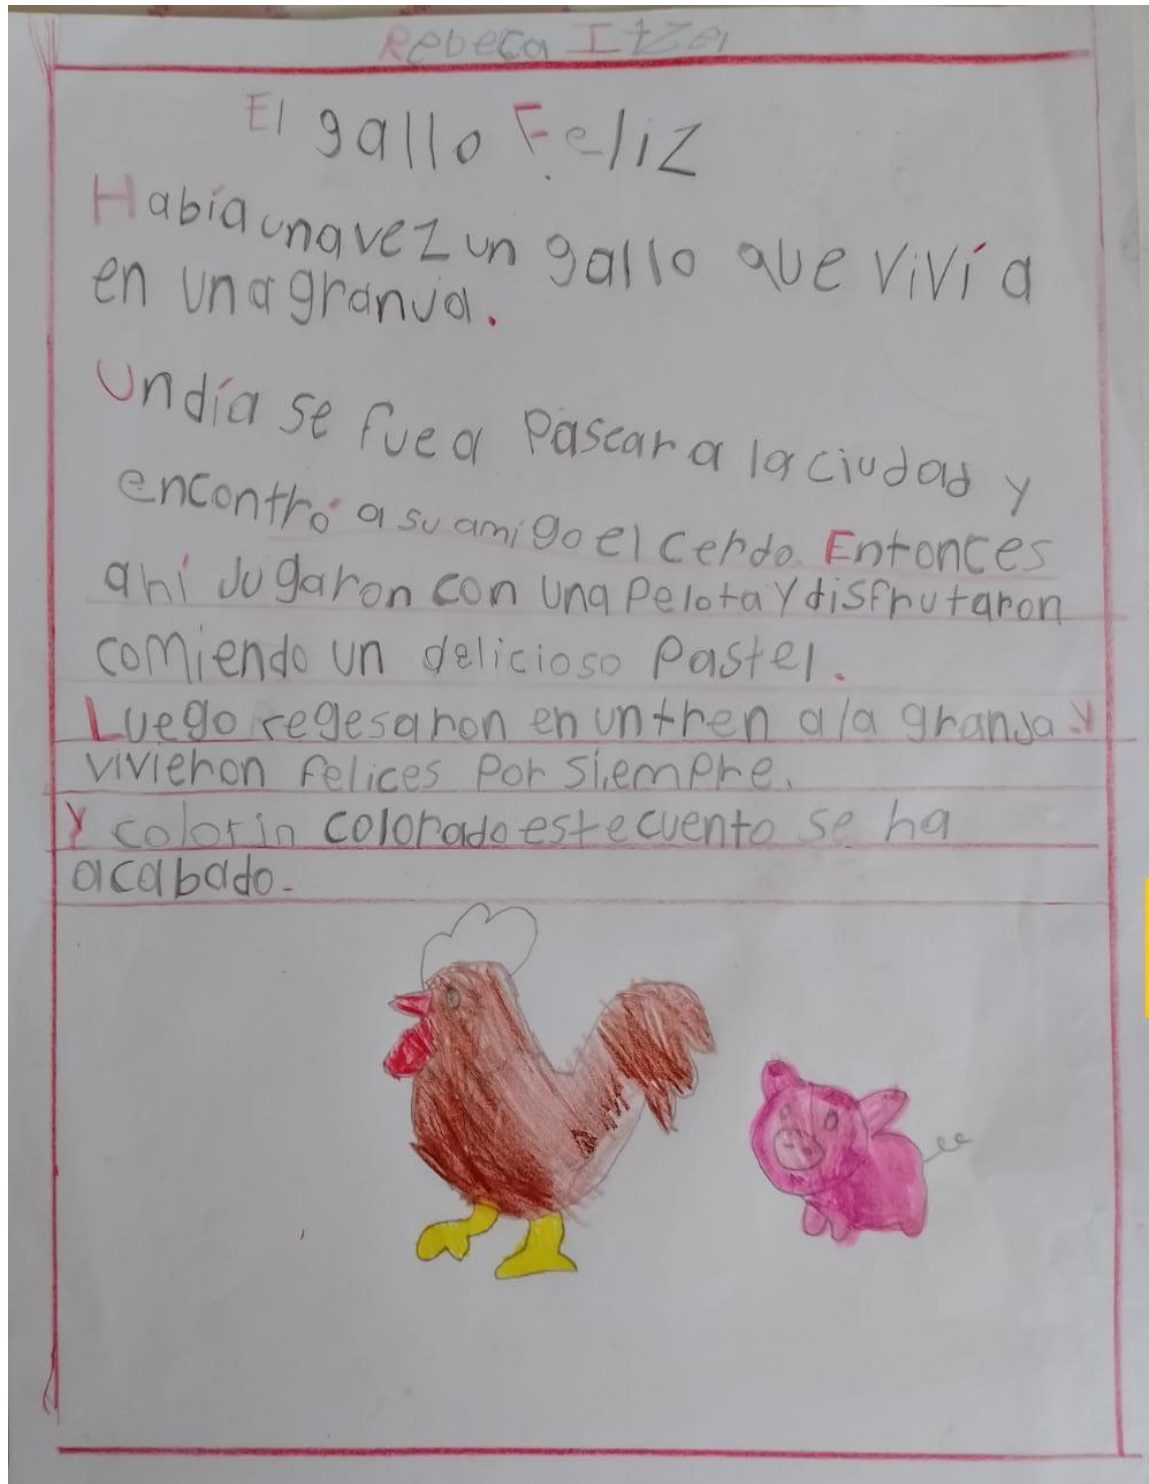 Rebeca Itzel
El gallo Feliz
Había una vez un gallo que viví a
en una granja.
Un día se fue a Pasear a la ciudad y
encontró a su amigo el cerdo. Entonces
ahí Jugaron con una Pelota y disfrutaron
comiendo un delicioso Pastel.
Luego regesaron en un tren a la granja. Y
vivieron felices Por siempre.
Y colorin colorado este cuento se ha
acabado.